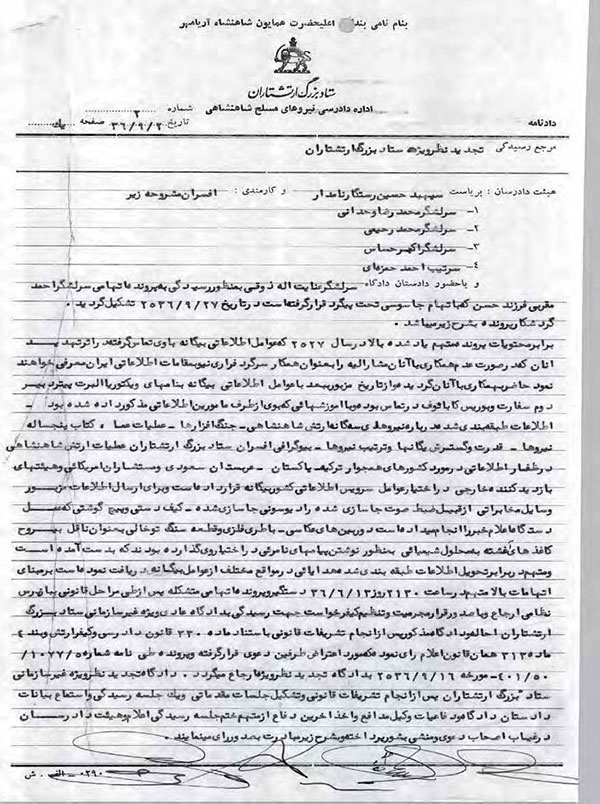 بنام نامی اعلیحضرت همایون شاهنشاه آریامهر
ستاد بزرگ ارتشتاران
اداره دادرسی نیروهای مسلح شاهنشاهی
شماره ۲
دادنامه
تاریخ ۳۶/۹/۲ صفحه یك
مرجع رسیدگی تجدید نظر ویژه ستاد بزرگ ارتشتاران
هیئت دادرسان : بریاست سپهبد حسین رستگار نامدار و کارمندی : افسران مشروحه زیر
۱- سرلشگر محمد رضا وحدانی
۲- سرلشگر محمد رحیمی
۳- سرلشگر اکبر حساس
۴- سرتیپ احمد حمزه‌ای
و باحضور دادستان دادگاه سرلشگر عنایت اله ذوقی بمنظور رسیدگی به پرونده اتهامی سرلشگر احمد
مقربی فرزند حسن که باتهام جاسوسی تحت پیگرد قرار گرفته است در تاریخ ۲۵۳۶/۹/۲۷ تشکیل گردید .
گردشکار پرونده بشرح زیر میباشد .
برابر محتویات پرونده متهم یاد شده بالا در سال ۲۵۲۷ که عوامل اطلاعاتی بیگانه با وی تماس گرفته و او را تهدید
آنان که در صورت عدم همکاری با آنان مشارالیه را بعنوان همکار سرگرد فراری بمقامات اطلاعاتی ایران معرفی خواهند
نمود حاضر بهمکاری با آنان گردیده و از تاریخ مزبور ببعد با عوامل اطلاعاتی بیگانه بنامهای ویکتور یا البرت پیتر دبیر
دوم سفارت و بوریس کابانوف در تماس بوده و با آموزشهائی که بوی از طرف مامورین اطلاعاتی مذکور داده شده بود
اطلاعات طبقه بندی شده درباره نیروهای سه گانه ارتش شاهنشاهی - جنگ افزارها - عملیات عصا ، کتاب پنجساله
نیروها - قدرت و گسترش یگانها و ترتیب نیروها - بیوگرافی افسران ستاد بزرگ ارتشتاران عملیات ارتش شاهنشاهی
در ظفار اطلاعاتی در مورد کشورهای همجوار ترکیه - پاکستان - عربستان سعودی و مستشاران امریکائی و هیئتهای
بازدید کننده خارجی در اختیار عوامل سرویس اطلاعاتی کشور بیگانه قرار داده است و برای ارسال اطلاعات مزبور
وسایل مخابراتی از قبیل ضبط صوت جاسازی شده رادیو سونی جاسازی شده - کیف دستی و پیچ گوشتی که محل
دستگاه اعلام خبر را انجام میداده است و دوربین های عکاسی - باطری فلزی و قطعه سنگ توخالی بعنوان ناقل بی‌روح
کاغذهای آغشته به محلول شیمیائی بمنظور نوشتن پیامهای نامرئی در اختیار وی گذارده بودند که بدست آمده است
و متهم در برابر تحویل اطلاعات طبقه بندی شده هدایائی در مواقع مختلف از عوامل بیگانه دریافت نموده است بر مبنای
اتهامات بالا متهم در ساعت ۲۱۳۰ روز ۳۶/۶/۱۳ دستگیر و پرونده اتهامی متشکله پس از طی مراحل قانونی ببازپرس
نظامی ارجاع و با صدور قرار مجرمیت و تنظیم کیفر خواست جهت رسیدگی بدادگاه عادی ویژه غیر سازمانی ستاد بزرگ
ارتشتاران احاله و دادگاه مذکور پس از انجام تشریفات قانونی باستناد ماده ۳۳۰ قانون دادرسی و کیفر ارتش و بند ۴
ماده ۳۱۳ همان قانون اعلام رای نموده که مورد اعتراض طرفین دعوی قرار گرفته و پرونده طی نامه شماره ۱۰۷۷/۵/
۴۰۱/۵۰- مورخه ۲۵۳۶/۹/۱۶ بدادگاه تجدید نظر ویژه ارجاع میگردد . دادگاه تجدید نظر ویژه غیر سازمانی
ستاد بزرگ ارتشتاران پس از انجام تشریفات قانونی و تشکیل جلسات مقدماتی و یك جلسه رسیدگی و استماع بیانات
دادستان دادگاه و دفاعیات وکیل مدافع و اخذ آخرین دفاع از متهم ختم جلسه رسیدگی اعلام و هیئت دادرسان
در غیاب اصحاب دعوی و منشی بشور پرداخته و بشرح زیر مبادرت بصدور رای مینمایند .
۰۲۹۰- الف . ش